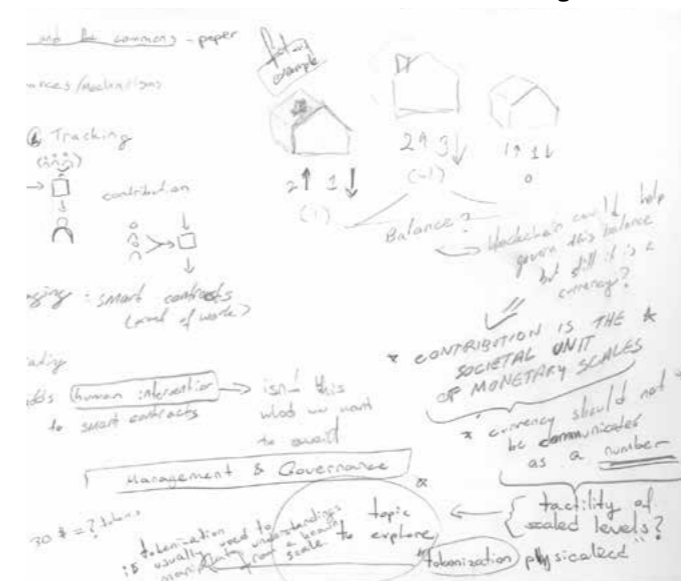 and the commons - paper
Tracking
contribution
smart contracts
(proof of work?)
human intervention → isn't this
to smart contracts
what we want
to avoid
Management & Governance
30 $ = ? tokens
tokenization
is usually used to
manipulate understandings
from a
scale
topic
to explore
factory
example
2↑ 1↓
(1)
2↑ 3↓
(-1)
1↑ 1↓
0
Balance?
blockchain could help
govern this balance
but still it is a
currency?
* CONTRIBUTION IS THE *
SOCIETAL UNIT
OF MONETARY SCALES
* currency should not *
be communicated
as a number
tactility of
scaled levels?
"tokenization physicalized"